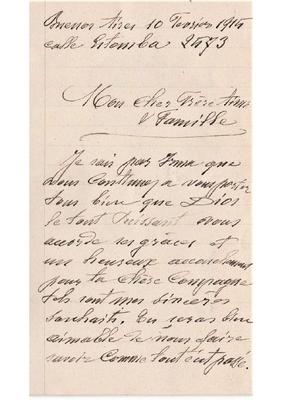 Buenos Aires 10 Fevrier 1914
calle Estomba 2473
Mon cher Frère Aimé
& Famille
Je sais par Irma que
vous continuez a vous porter
tous bien que Dios
le tout Puissant vous
accorde ses grâces et
un heureux accouchement
pour ta chère Compagne
tels sont mes sinceres
souhaits. Tu seras bien
aimable de nous faire
savoir comme tout s'est passé.